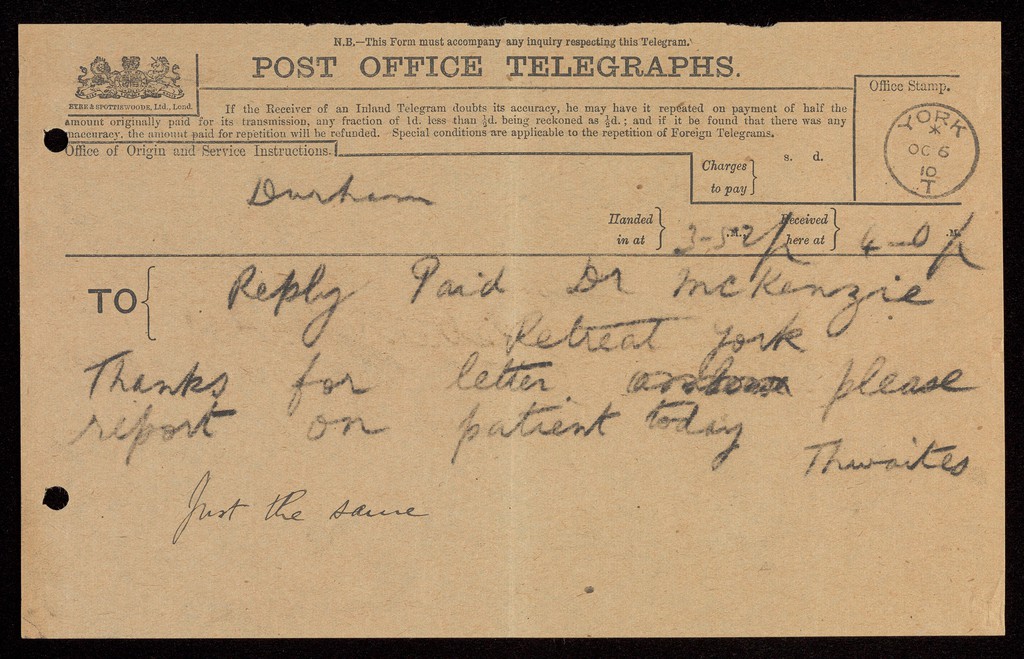 N.B.—This Form must accompany any inquiry respecting this Telegram.
POST OFFICE TELEGRAPHS.
EYRE & SPOTTISWOODE, Ltd., Lond.
If the Receiver of an Inland Telegram doubts its accuracy, he may have it repeated on payment of half the
amount originally paid for its transmission, any fraction of 1d. less than ½d. being reckoned as ½d.; and if it be found that there was any
inaccuracy, the amount paid for repetition will be refunded. Special conditions are applicable to the repetition of Foreign Telegrams.
Office Stamp.
YORK
*
OC 6
10
T
Office of Origin and Service Instructions.
Charges to pay } s. d.
Durham
Handed in at } 3-52 p .M., Received here at } 4-0 p .M.
TO { Reply Paid Dr McKenzie
Retreat York
Thanks for letter please
report on patient today
Thwaites
Just the same